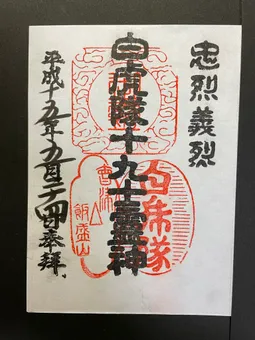 忠烈義烈
白虎隊十九士霊神
平成十五年五月二四日奉拝
白虎隊
會津
飯盛山